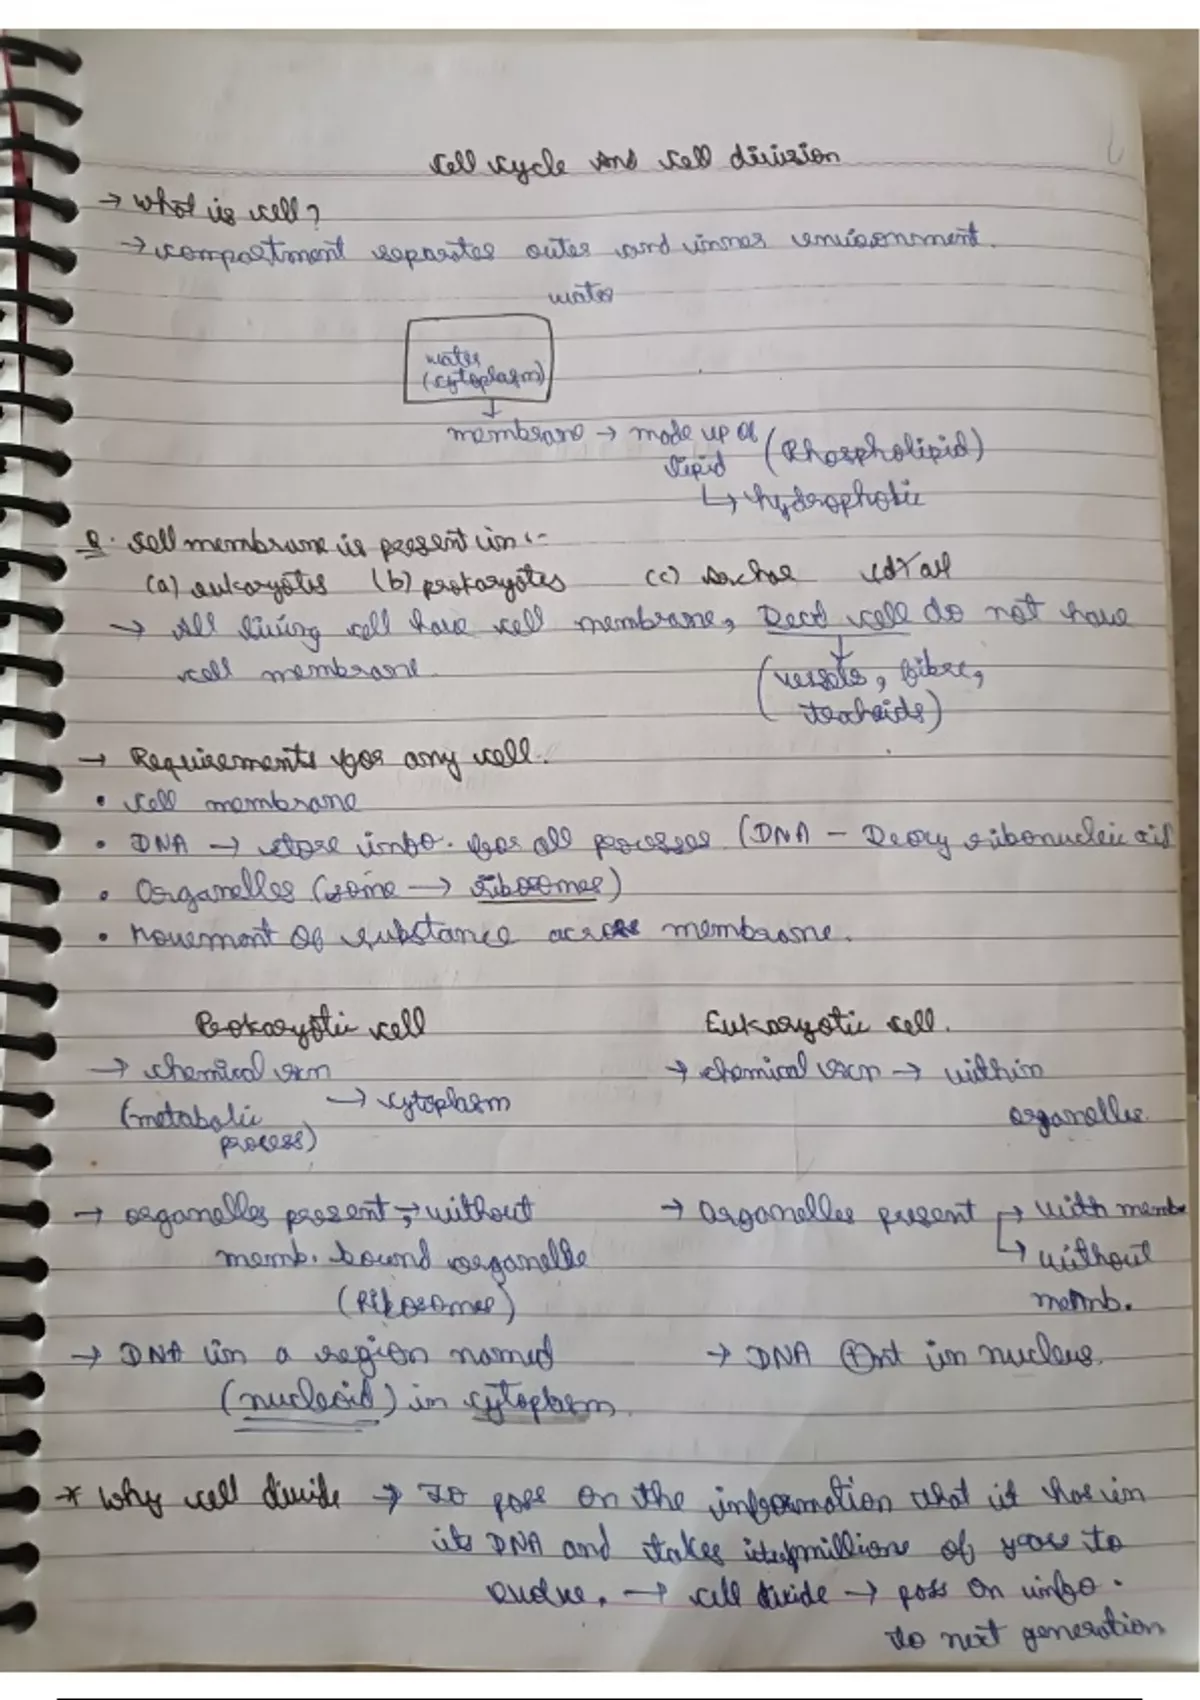 Cell cycle And Cell division
→ What is cell?
→ compartment separates outer and inner environment.
water
water
(cytoplasm)
↓
membrane → made up of (Phospholipid)
lipid
↳ hydrophobic
Q. Cell membrane is present in :-
(a) eukaryotes (b) prokaryotes (c) Archae (d) all
→ All living cell have cell membrane, Dead cell do not have
cell membrane.
(vessels, fibre,
tracheids)
→ Requirements for any cell.
• Cell membrane
• DNA → store info. for all processes (DNA - Deoxy ribonucleic acid
• Organelles (some → ribosomes)
• Movement of substance across membrane.
Prokaryotic cell Eukaryotic cell.
→ chemical rxn → chemical rxn → within
(metabolic → cytoplasm organelles
process)
→ organelles present → without → Organelles present → with memb
memb. bound organelle ↳ without
(Ribosomes) memb.
→ DNA in a region named → DNA Prt in nucleus.
(nucleoid) in cytoplasm.
* Why cell divide → To pass on the information that it has in
its DNA and takes millions of years to
evolve. → cell divide → pass on info.
to next generation